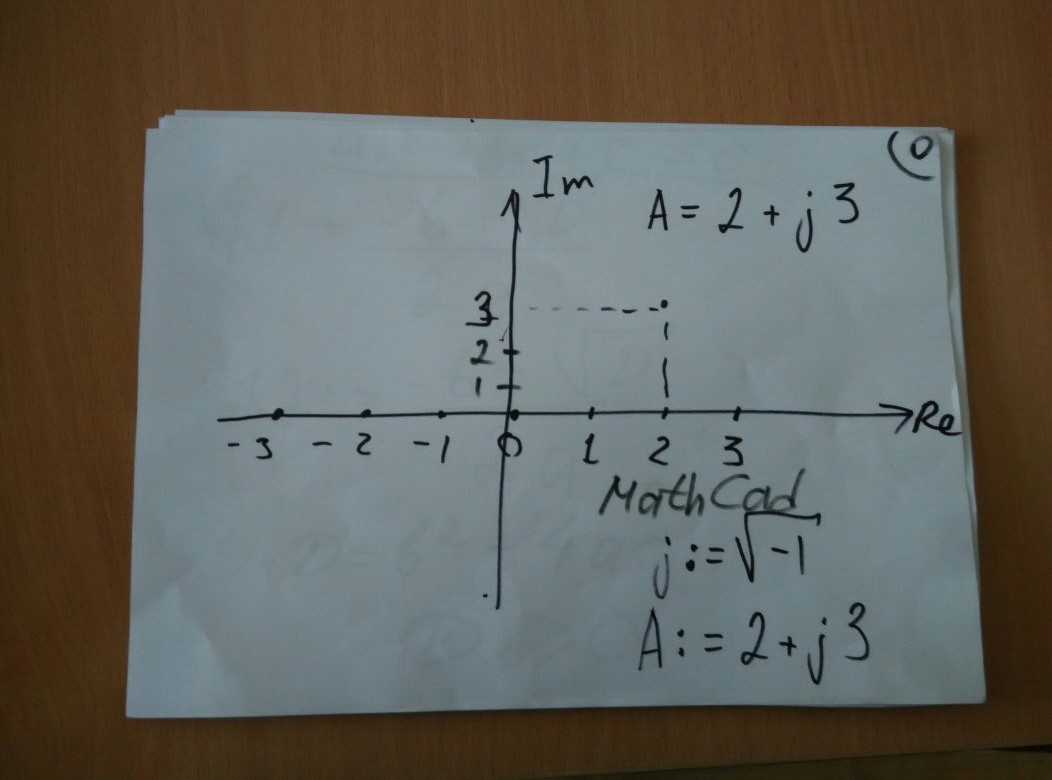 0
Im
A = 2 + j 3
3
2
1
Re
-3 -2 -1 0 1 2 3
MathCad
j := √-1
A := 2 + j 3